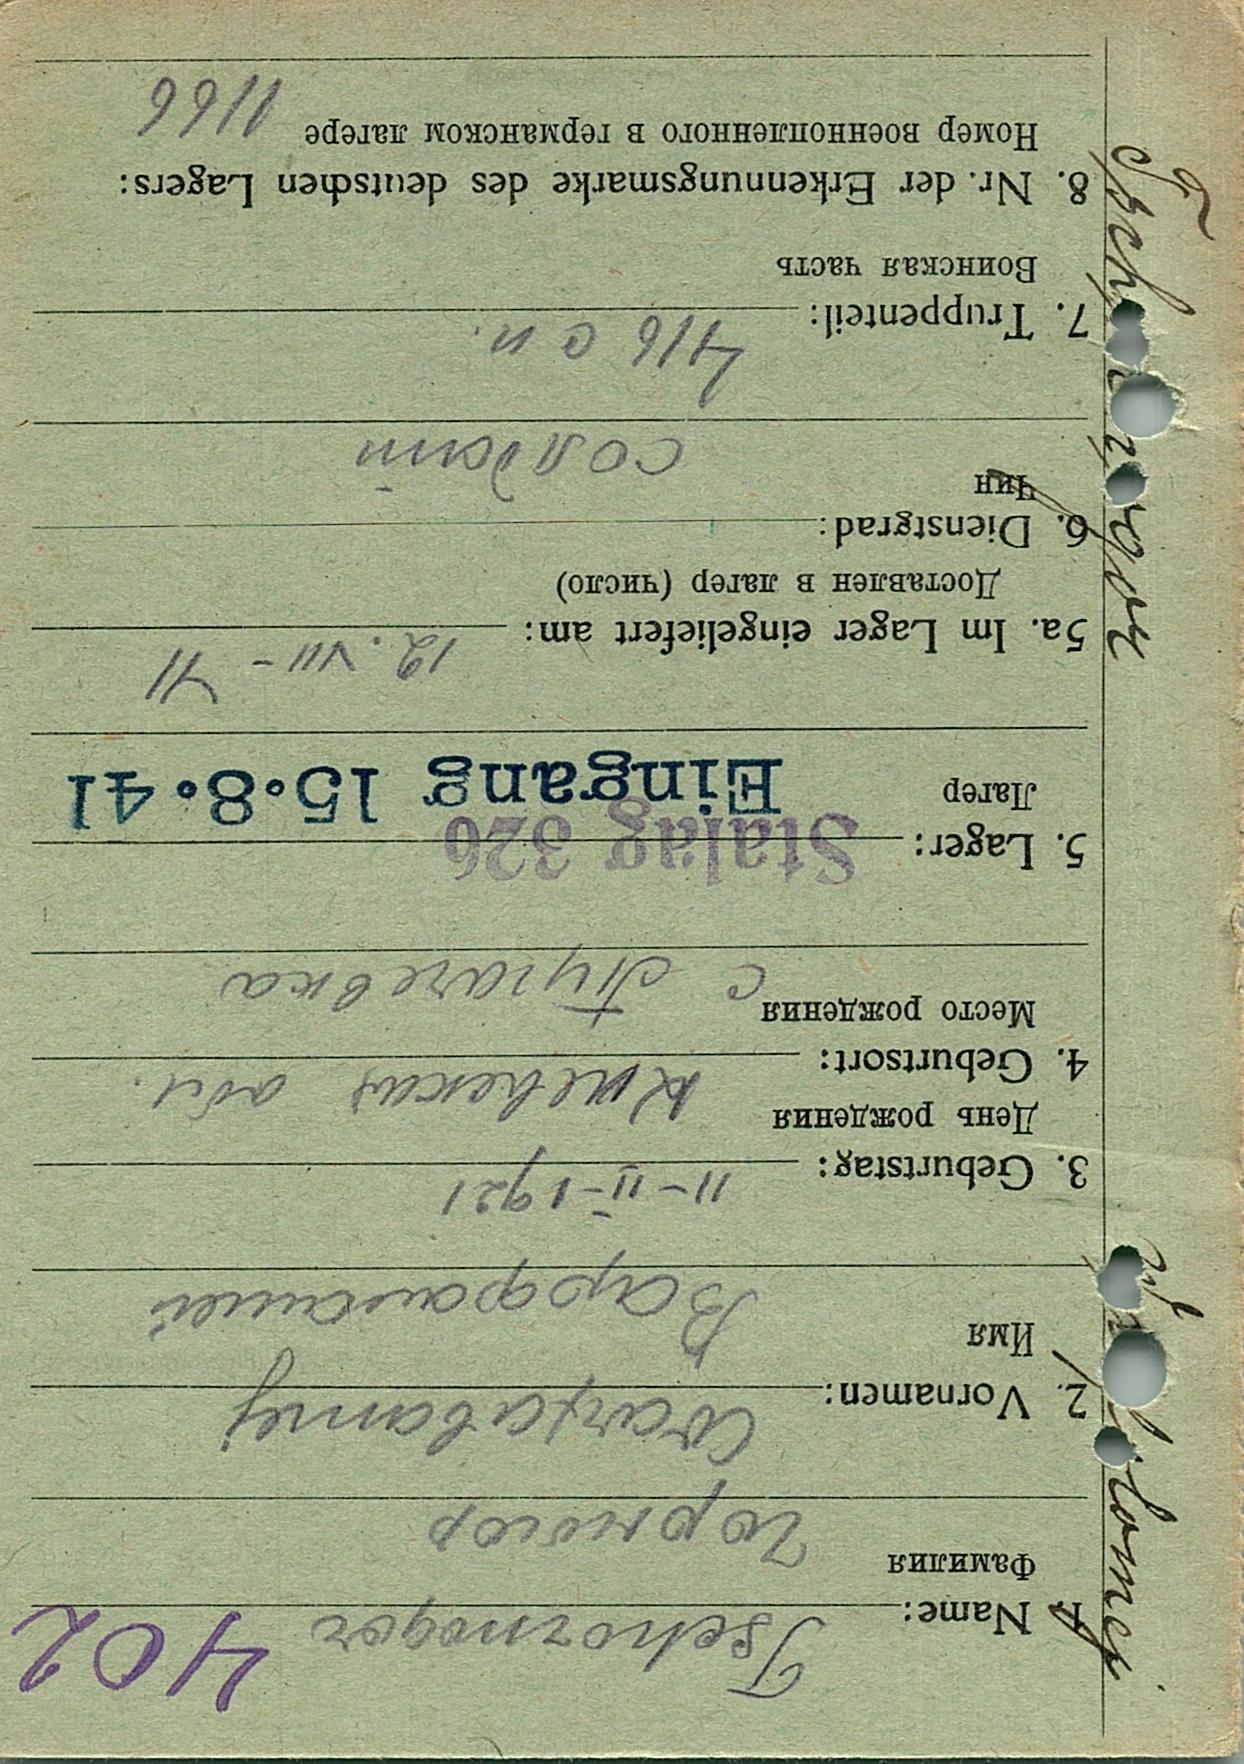 402
1. Name: Tschornogor
Фамилия Чорногор
2. Vornamen:
Имя
3. Geburtstag: 11-II-1921
День рождения
Киевская обл.
4. Geburtsort:
Место рождения
с Пугачевка
5. Lager: Stalag 326
Лагер Eingang 15.8.41
5a. Im Lager eingeliefert am: 12. VII - 41
Доставлен в лагер (число)
6. Dienstgrad:
Чин солдат
7. Truppenteil: 416 с п.
Воинская часть
8. Nr. der Erkennungsmarke des deutschen Lagers:
Номер военнопленного в германском лагере 1166